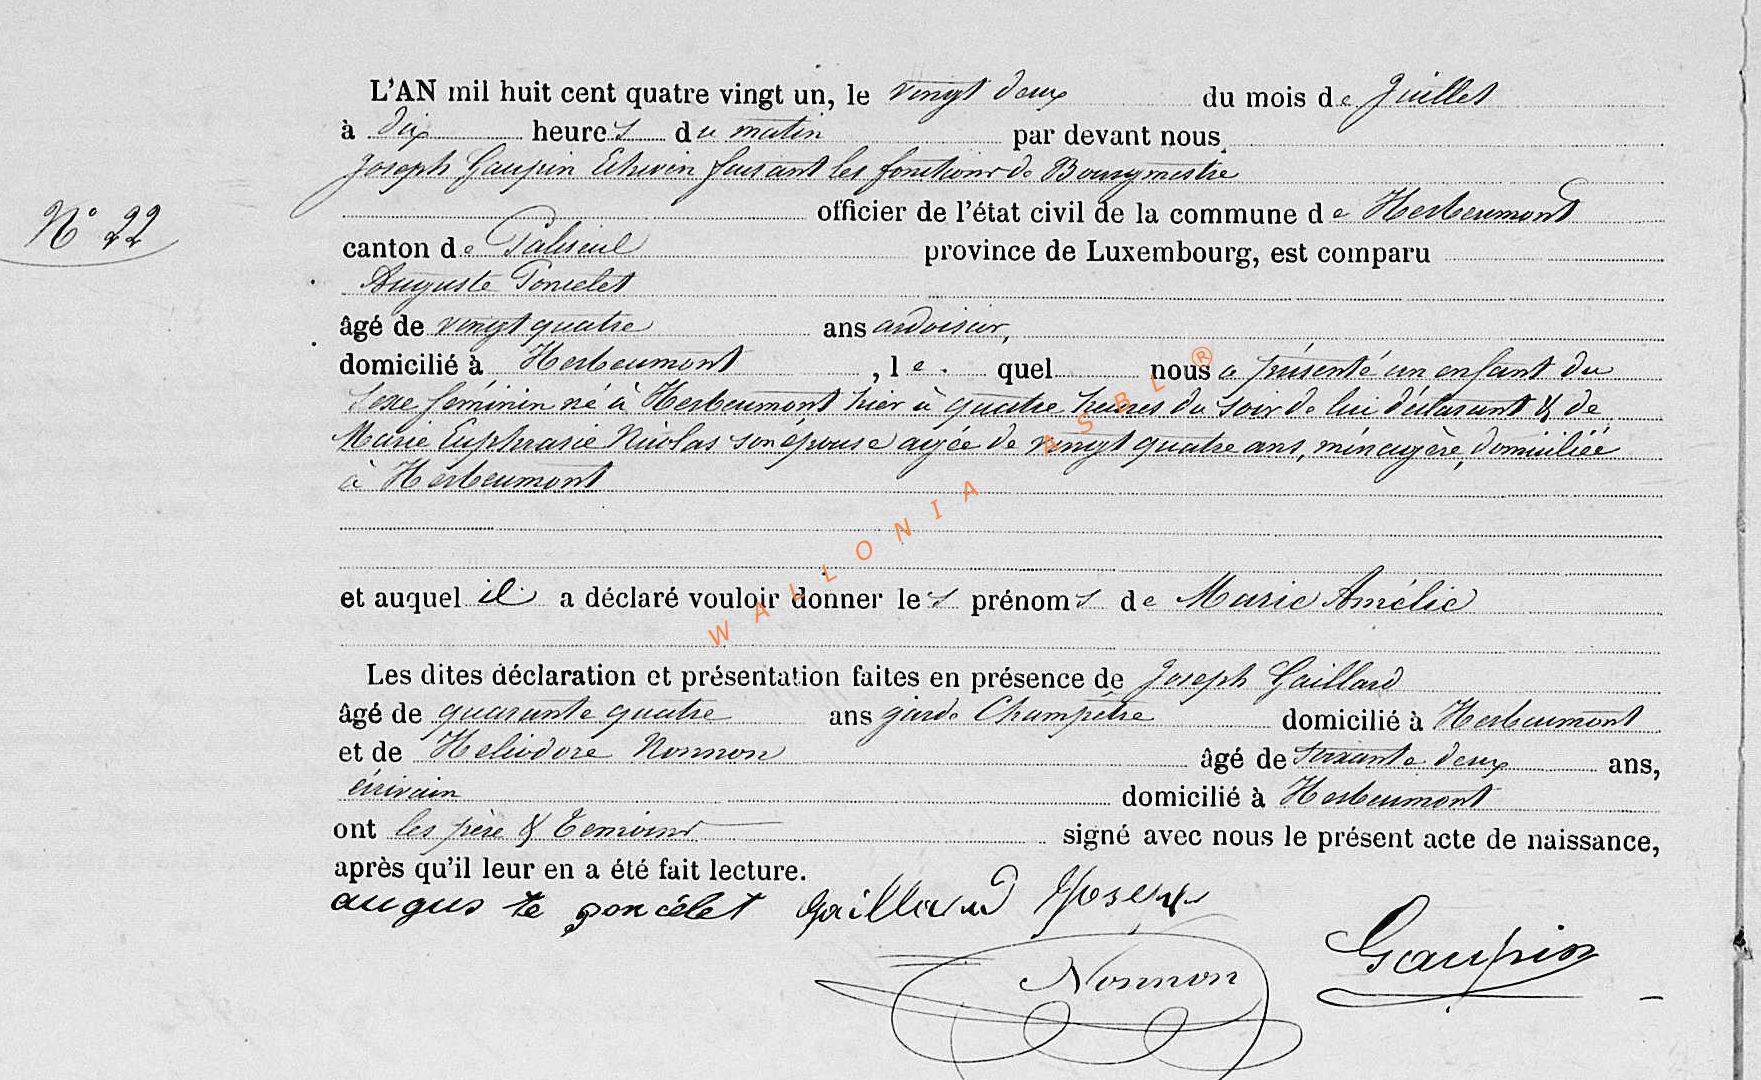 L'AN mil huit cent quatre vingt un, le vingt deux du mois de Juillet
à dix heures du matin par devant nous
Joseph Gaupin Echevin faisant les fonctions de Bourgmestre
N° 22
officier de l'état civil de la commune de Herbeumont
canton de Paliseul province de Luxembourg, est comparu
Auguste Poncelet
âgé de vingt quatre ans ardoisier,
domicilié à Herbeumont, le quel nous a présenté un enfant du
sexe féminin né à Herbeumont hier à quatre heures du soir de lui déclarant & de
Marie Euphrasie Nicolas son épouse agée de vingt quatre ans, ménagère, domiciliée
à Herbeumont
et auquel il a déclaré vouloir donner les prénoms de Marie Amélie
Les dites déclaration et présentation faites en présence de Joseph Gaillard
âgé de quarante quatre ans garde Champêtre domicilié à Herbeumont
et de Heliodore Nonnon âgé de soixante deux ans,
écrivain domicilié à Herbeumont
ont les père & Temoins signé avec nous le présent acte de naissance,
après qu'il leur en a été fait lecture.
auguste poncélet Gaillard Joseph
Nonnon Gaupin
WALLONIA ASBL ®